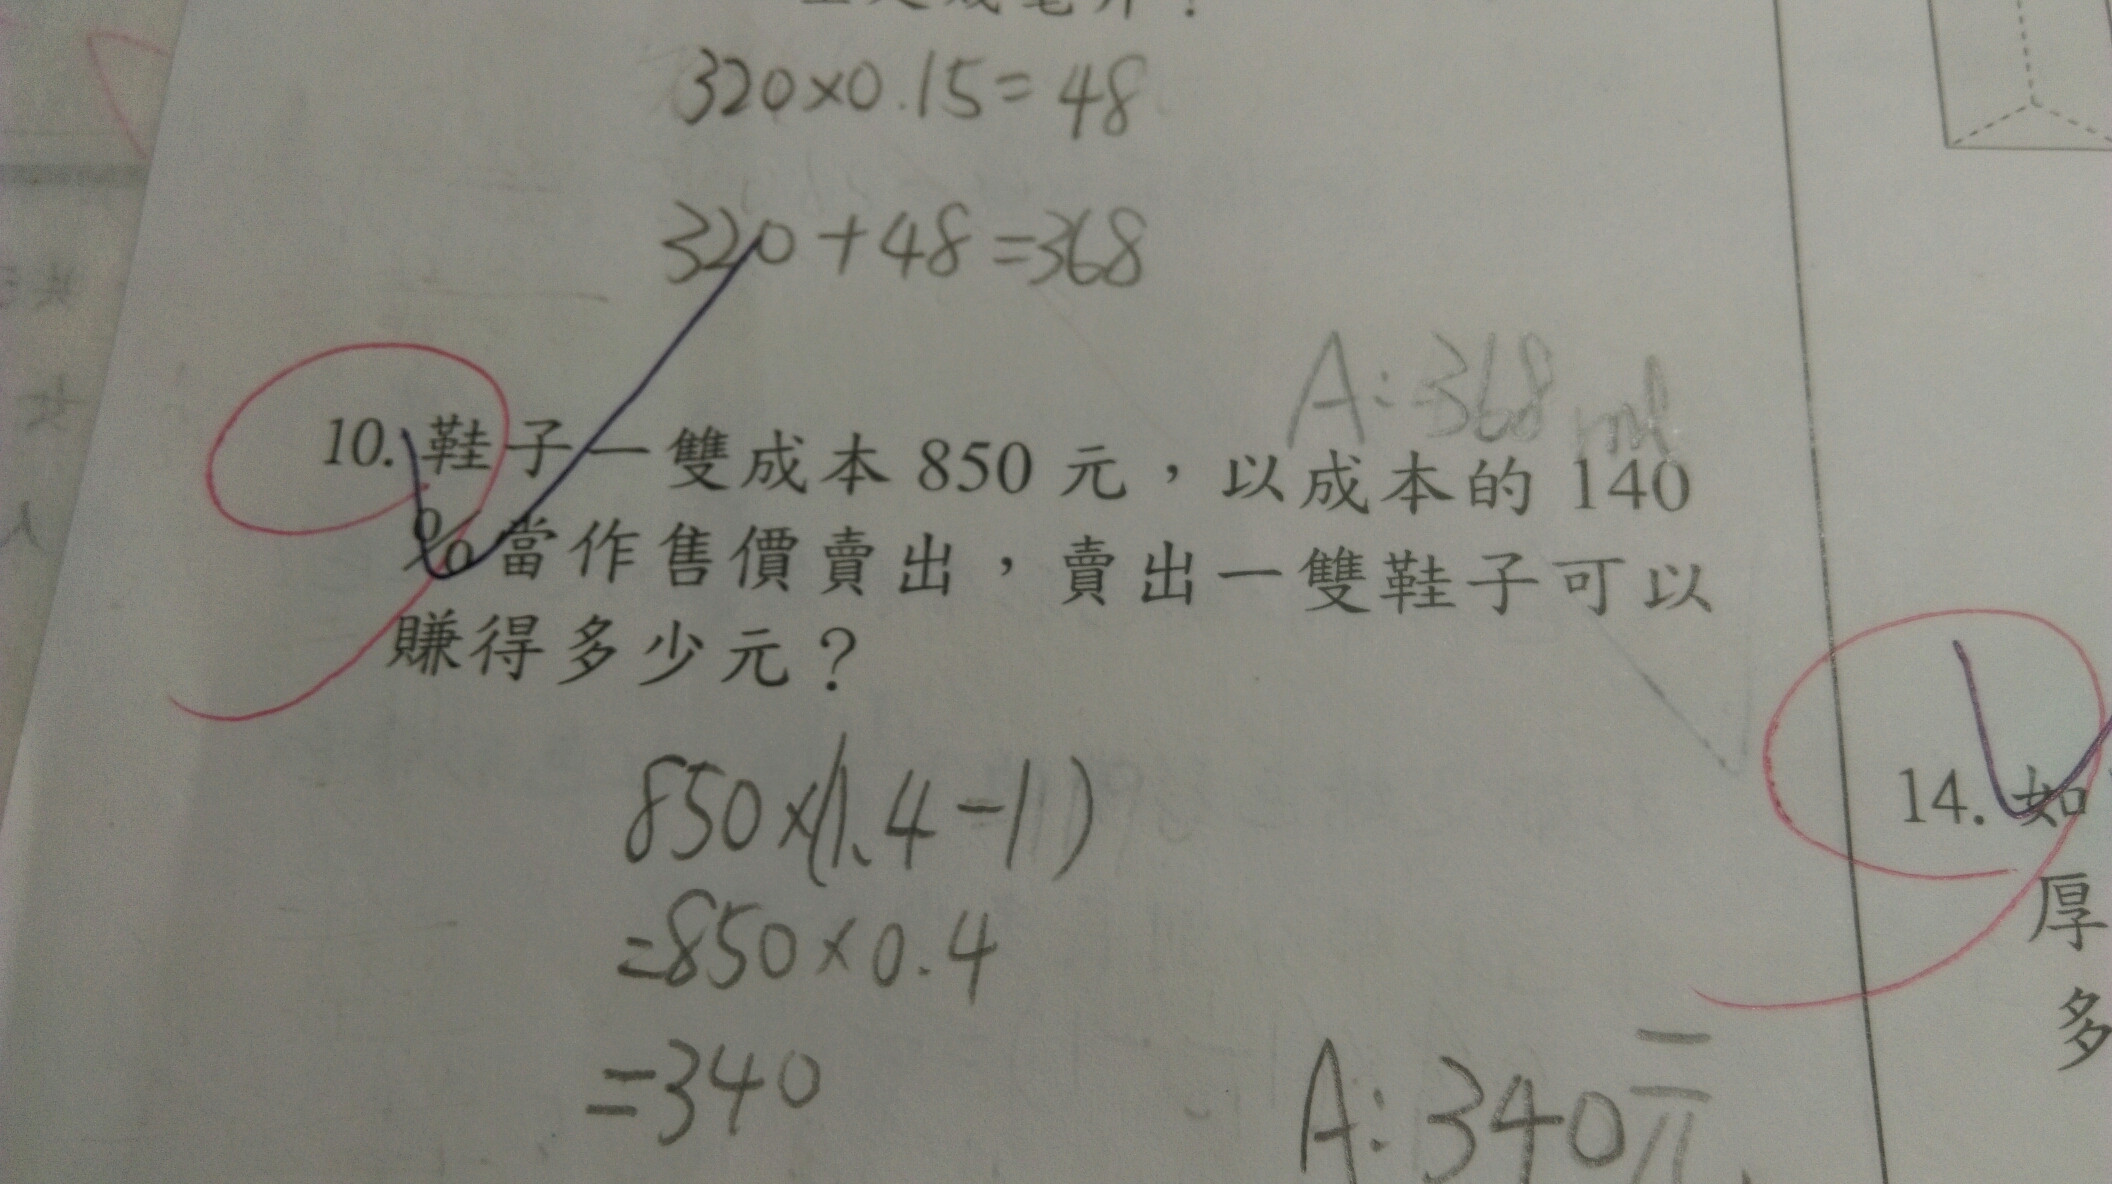 320×0.15=48
320+48=368
A:368ml
10.鞋子一雙成本850元,以成本的140
%當作售價賣出,賣出一雙鞋子可以
賺得多少元?
850×(1.4-1)
=850×0.4
=340
A:340元
14.如
厚
多